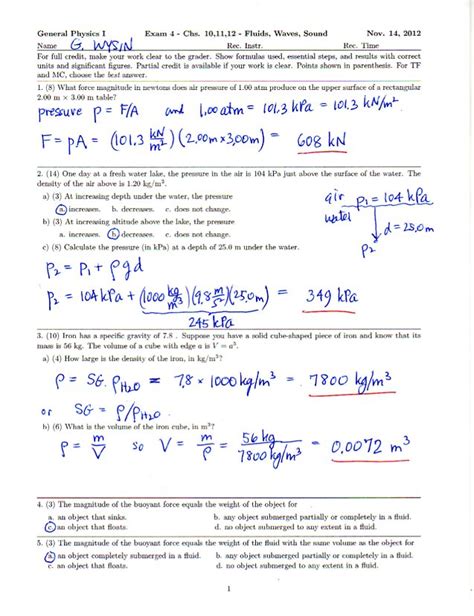 General Physics I Exam 4 - Chs. 10,11,12 - Fluids, Waves, Sound Nov. 14, 2012
Name G. WYSIN Rec. Instr. Rec. Time
For full credit, make your work clear to the grader. Show formulas used, essential steps, and results with correct
units and significant figures. Partial credit is available if your work is clear. Points shown in parenthesis. For TF
and MC, choose the best answer.
1. (8) What force magnitude in newtons does air pressure of 1.00 atm produce on the upper surface of a rectangular
2.00 m × 3.00 m table?
pressure p = F/A and 1.00 atm = 101.3 kPa = 101.3 kN/m²
F = pA = (101.3 kN/m²)(2.00m×3.00m) = 608 kN
2. (14) One day at a fresh water lake, the pressure in the air is 104 kPa just above the surface of the water. The
density of the air above is 1.20 kg/m³.
a) (3) At increasing depth under the water, the pressure
a. increases. b. decreases. c. does not change.
b) (3) At increasing altitude above the lake, the pressure
a. increases. b. decreases. c. does not change.
c) (8) Calculate the pressure (in kPa) at a depth of 25.0 m under the water.
air p₁ = 104 kPa
water
d = 25.0m
p₂
p₂ = p₁ + ρgd
p₂ = 104 kPa + (1000 kg/m³)(9.8 m/s²)(25.0m) = 349 kPa
245 kPa
3. (10) Iron has a specific gravity of 7.8 . Suppose you have a solid cube-shaped piece of iron and know that its
mass is 56 kg. The volume of a cube with edge a is V = a³.
a) (4) How large is the density of the iron, in kg/m³?
ρ = SG. ρH₂O = 7.8 × 1000 kg/m³ = 7800 kg/m³
or SG = ρ/ρH₂O
b) (6) What is the volume of the iron cube, in m³?
ρ = m/V so V = m/ρ = 56 kg/7800 kg/m³ = 0.0072 m³
4. (3) The magnitude of the buoyant force equals the weight of the object for
a. an object that sinks. b. any object submerged partially or completely in a fluid.
c. an object that floats. d. no object submerged to any extent in a fluid.
5. (3) The magnitude of the buoyant force equals the weight of the displaced fluid for
a. an object completely submerged in a fluid. b. any object submerged partially or completely in a fluid.
c. an object that floats. d. no object submerged to any extent within a fluid.
1